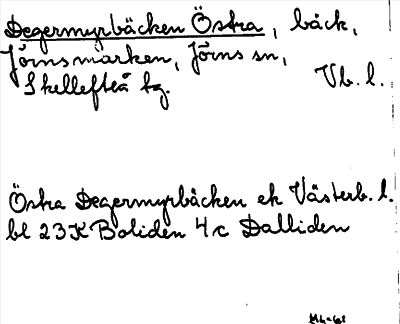 Degermyrbäcken Östra, bäck,
Jörnsmarken, Jörns sn,
Skellefteå tg. Vb. l.
Östra Degermyrbäcken ek Västerb. l.
bl 23K Boliden 4c Dalliden